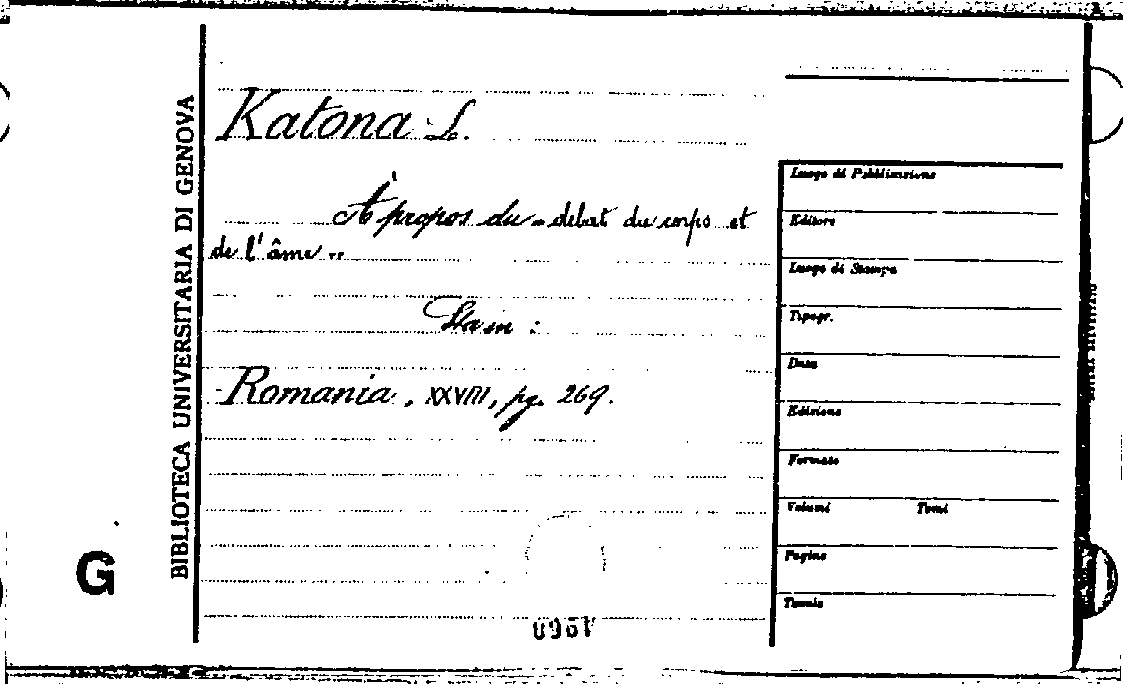 BIBLIOTECA UNIVERSITARIA DI GENOVA
G
Katona L.
À propos du „debat du corps et
de l'âme„.
Sta in :
Romania, XXVIII, pg. 269.
Luogo di Pubblicazione
Editore
Luogo di Stampa
Tipogr.
Data
Edizione
Formato
Volumi Tomi
Pagine